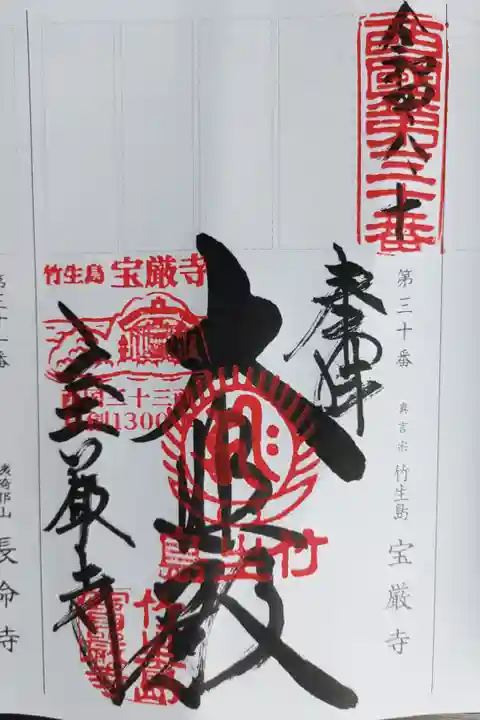 西国第三十番
奉拝
第三十番
真言宗 竹生島 宝厳寺
大悲殿
竹生島
竹生島 宝厳寺
西国三十三所
草創1300年
宝厳寺
第三十一番
姨綺耶山 長命寺